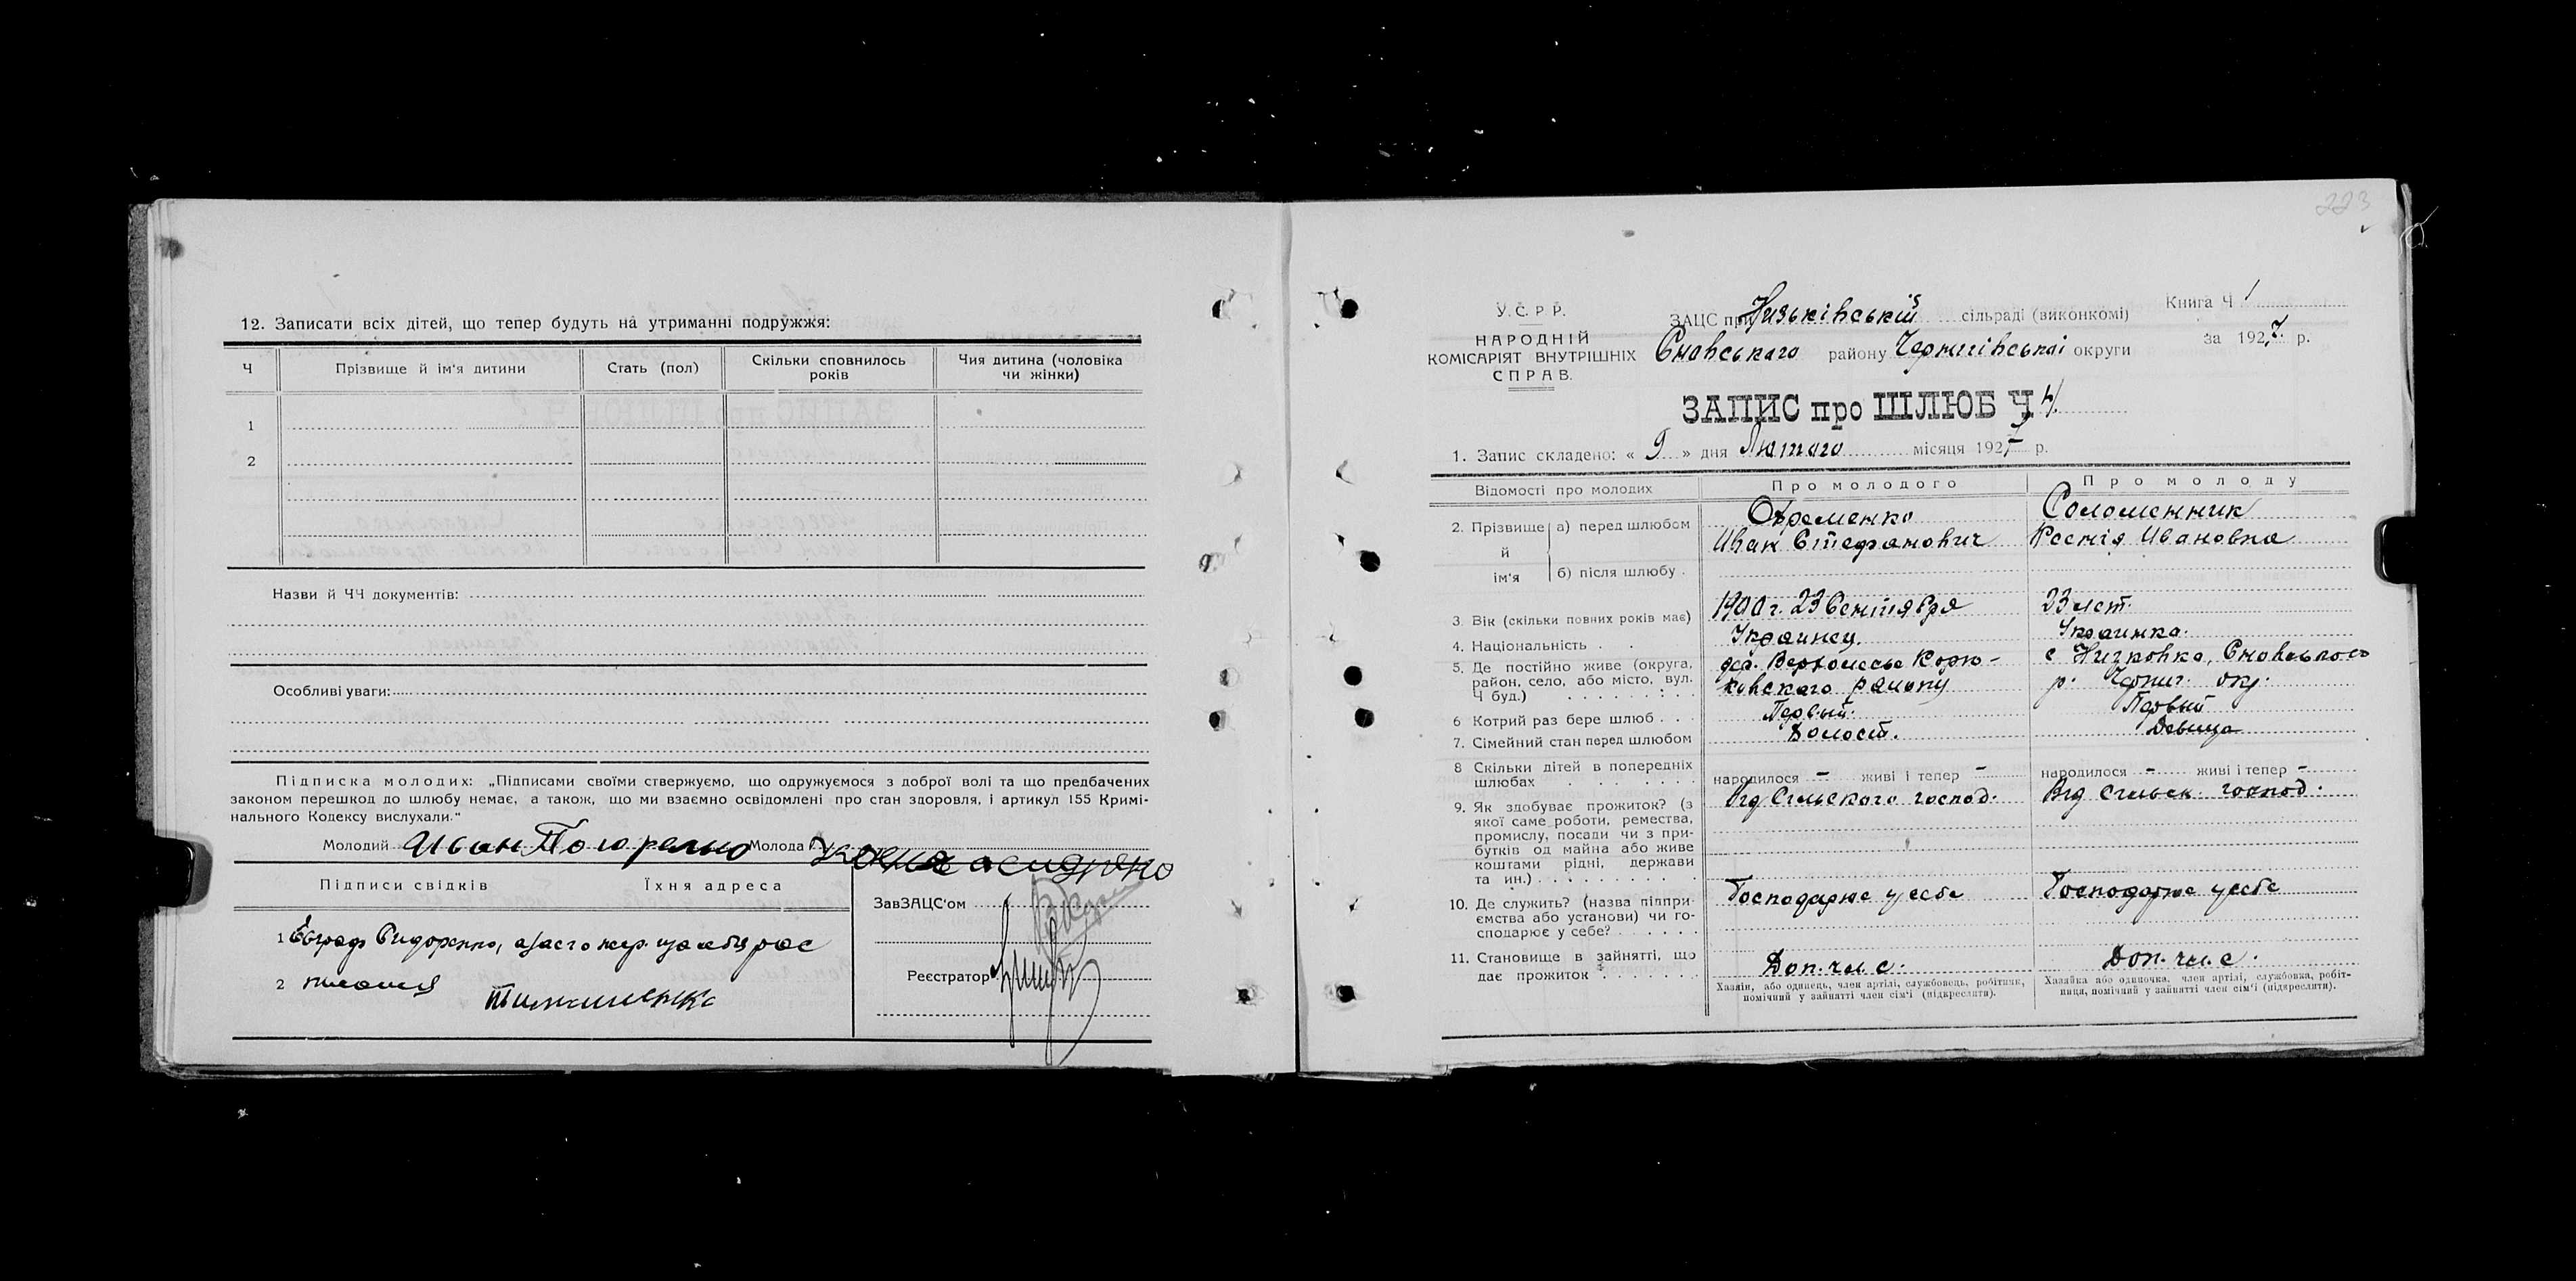 12. Записати всіх дітей, що тепер будуть на утриманні подружжя:
Ч
Прізвище й ім'я дитини
Стать (пол)
Скільки сповнилось
років
Чия дитина (чоловіка
чи жінки)
1
2
Назви й ЧЧ документів:
Особливі уваги:
Підписка молодих: „Підписами своїми ствержуємо, що одружуємося з доброї волі та що предбачених
законом перешкод до шлюбу немає, а також, що ми взаємно освідомлені про стан здоровля, і артикул 155 Кримі-
нального Кодексу вислухали."
Молодий Иван Молода
Підписи свідків
Їхня адреса
ЗавЗАЦС'ом
1 Евграф Сидоренко,
2
Реєстратор
223
У. С. Р. Р.
НАРОДНІЙ
КОМІСАРІЯТ ВНУТРІШНІХ
СПРАВ.
ЗАЦС при Низьківській сільраді (виконкомі)
Сновського району Чернигівськоі округи
Книга Ч 1
За 1927 р.
ЗАПИС про ШЛЮБ Ч 4.
1. Запис складено: « 9 » дня Лютого місяця 1927 р.
Відомості про молодих
Про молодого
Про молоду
2. Прізвище
й
ім'я
а) перед шлюбом
б) після шлюбу
Охременко
Иван Стефанович
Соломенник
Ксенія Ивановна
3. Вік (скільки повних років має)
1900 г. 23 Сентября
23 лет.
4. Національність
Украинец.
Украинка.
5. Де постійно живе (округа,
район, село, або місто, вул.
Ч буд.)
дер. Верхолесье Корю-
ковского району
с Ничковка, Сновського
р. Черниг. окр.
6 Котрий раз бере шлюб
Первый.
Первый
7. Сімейний стан перед шлюбом
Холост.
Девица
8 Скільки дітей в попередніх
шлюбах
народилося – живі і тепер –
народилося – живі і тепер –
9. Як здобуває прожиток? (з
якої саме роботи, ремества,
промислу, посади чи з при-
бутків од майна або живе
коштами рідні, держави
та ин.)
Від Сільского господ.
Від сільск. господ.
10. Де служить? (назва підпри-
ємства або установи) чи го-
сподарює у себе?
Господарює у себе
Господарює у себе
11. Становище в зайнятті, що
дає прожиток
Доп. чл. с.
Доп. чл. с.
Хазяїн, або одинець, член артілі, службовець, робітник,
помічний у зайнятті член сім'ї (підкреслити).
Хазяйка або одиночка, член артілі, службовка, робіт-
ниця, помічний у зайнятті член сім'ї (підкреслити).